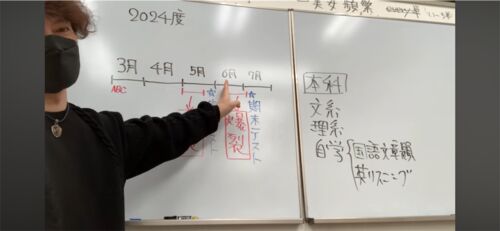 2024度
3月 4月 5月 6月 7月
ABC
爆裂
期末テスト
本科
文系
理系
自学
国語文章題
英リスニング